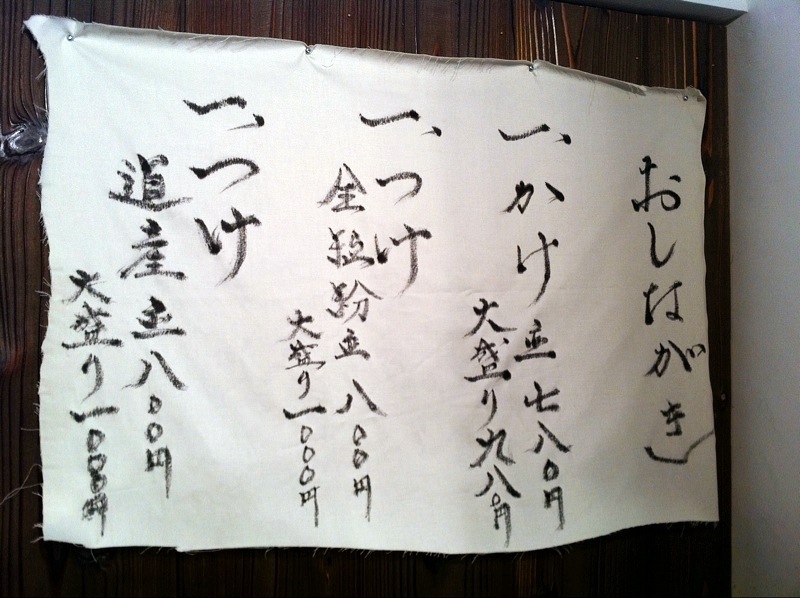 おしながき
一、かけ 並 七八〇円
大盛り 九八〇円
一、つけ
全粒粉 並 八〇〇円
大盛り 一〇〇〇円
一、つけ
道産 並 八〇〇円
大盛り 一〇〇〇円